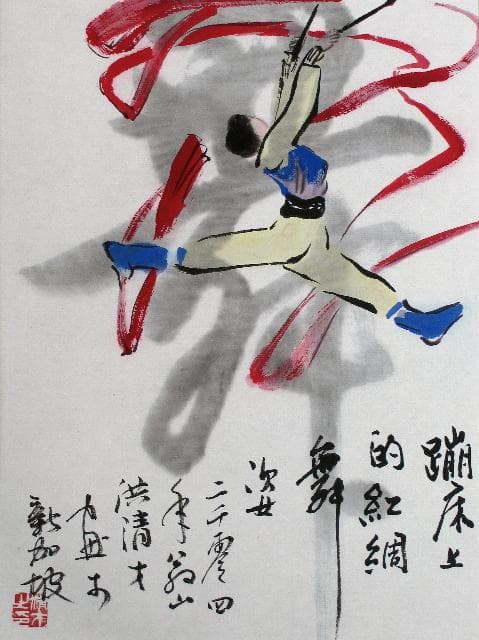 蹦床上
的紅綢
舞
姿
二千零四
年翁山
洪清才
新加坡